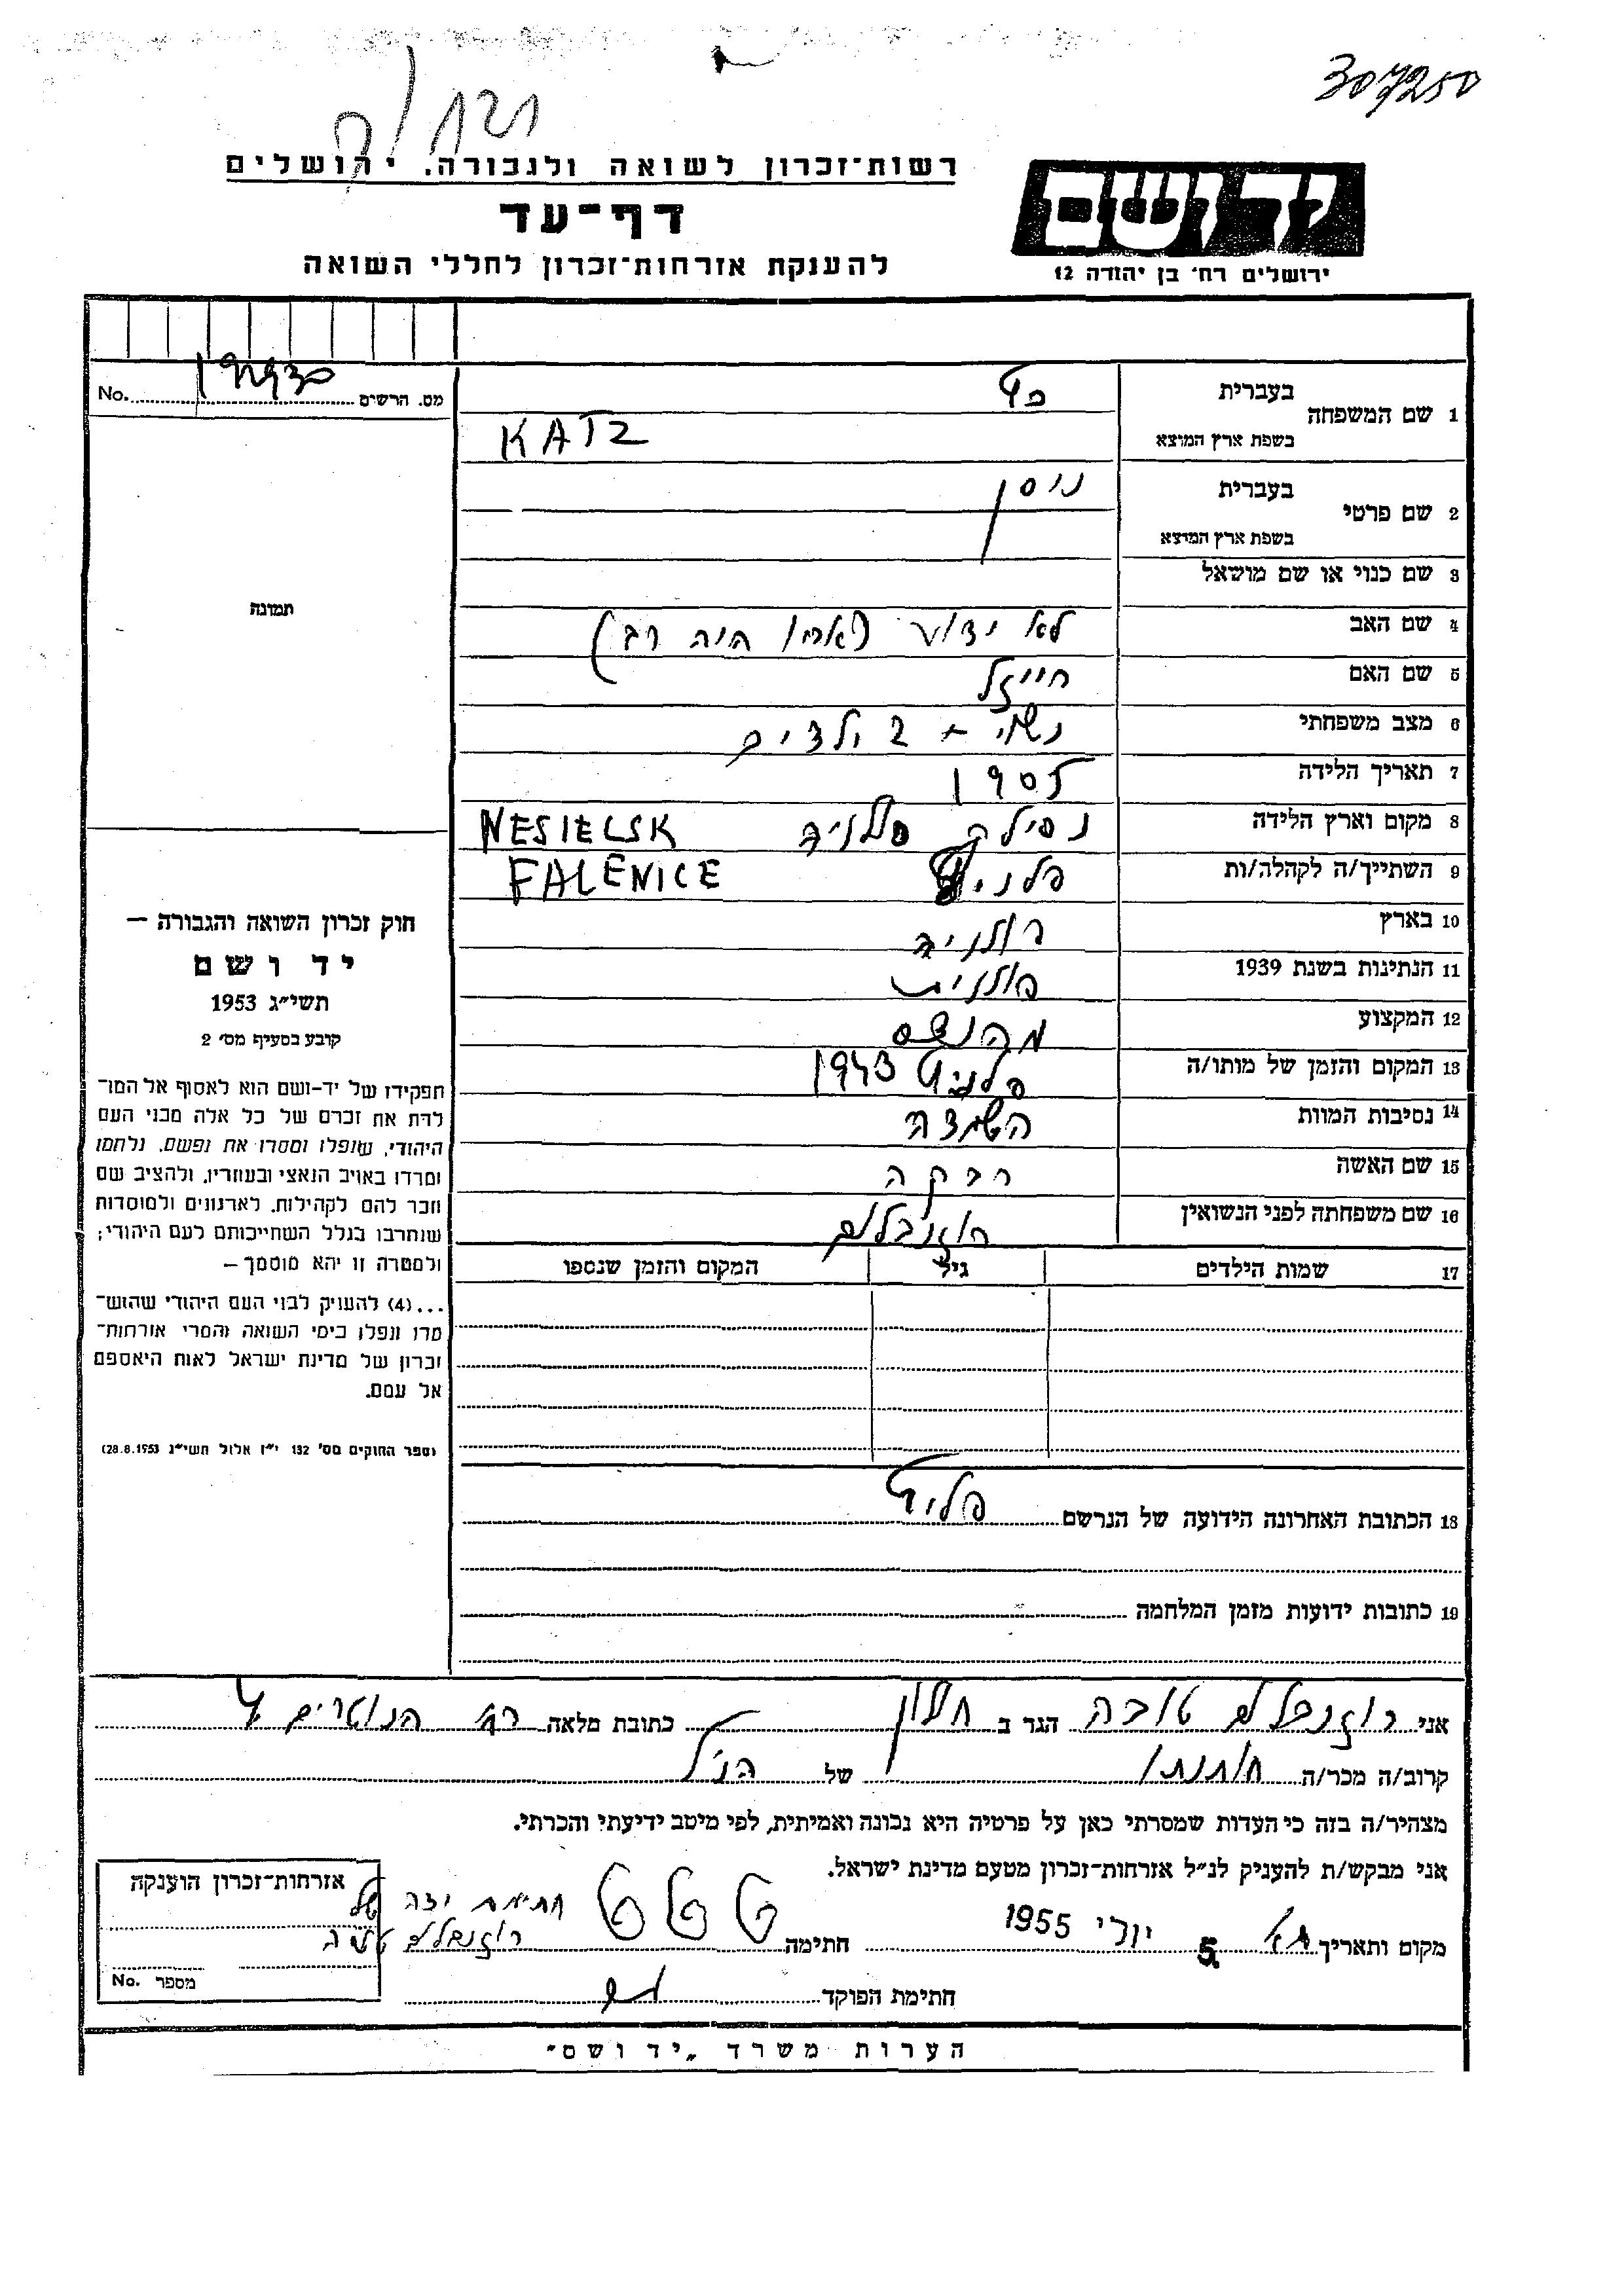 307250
רשות־זכרון לשואה ולגבורה. ירושלים
יד ושם
דף־עד
להענקת אזרחות־זכרון לחללי השואה
ירושלים רח' בן יהודה 12
מס. הרשים No.
1 שם המשפחה
בעברית כץ
בשפת ארץ המוצא KATZ
2 שם פרטי
בעברית ניסן
בשפת ארץ המוצא
3 שם כנוי או שם מושאל
תמונה
4 שם האב לא ידוע (אביו היה רב)
5 שם האם חייזל
6 מצב משפחתי נשוי + 2 ילדים
7 תאריך הלידה 1905
8 מקום וארץ הלידה פולניה NESIELSK
9 השתייך/ה לקהלה/ות פלניץ FALENICE
10 בארץ פולניה
11 הנתינות בשנת 1939 פולנית
12 המקצוע מהנדס
13 המקום והזמן של מותו/ה פלניץ 1943
14 נסיבות המוות השמדה
15 שם האשה רבקה
16 שם משפחתה לפני הנשואין רוזנבלום
17 שמות הילדים גיל המקום והזמן שנספו
חוק זכרון השואה והגבורה –
יד ושם
תשי״ג 1953
קובע בסעיף מס׳ 2
תפקידו של יד־ושם הוא לאסוף אל המו־
לדת את זכרם של כל אלה מבני העם
היהודי, שנפלו ומסרו את נפשם, נלחמו
ומרדו באויב הנאצי ובעוזריו, ולהציב שם
וזכר להם לקהילות, לארגונים ולמוסדות
שנחרבו בגלל השתייכותם לעם היהודי;
ולמטרה זו יהא מוסמך –
...(4) להעניק לבני העם היהודי שהוש־
מדו ונפלו בימי השואה והמרי אזרחות־
זכרון של מדינת ישראל לאות היאספם
אל עמם.
(ספר החוקים מס׳ 132 י״ז אלול תשי״ג 28.8.1953)
18 הכתובת האחרונה הידועה של הנרשם
19 כתובות ידועות מזמן המלחמה
אני רוזנבלום טובה הגר ב חולון כתובת מלאה רח׳ הנוטרים 4
קרוב/ה מכר/ה חותנתו של הנ״ל
מצהיר/ה בזה כי העדות שמסרתי כאן על פרטיה היא נכונה ואמיתית, לפי מיטב ידיעתי והכרתי.
אני מבקש/ת להעניק לנ״ל אזרחות־זכרון מטעם מדינת ישראל.
מקום ותאריך ת״א 5. יוני 1955 חתימה חתימת ידה של
רוזנבלום טובה
חתימת הפוקד
אזרחות־זכרון הוענקה
מספר No.
הערות משרד „יד ושם״